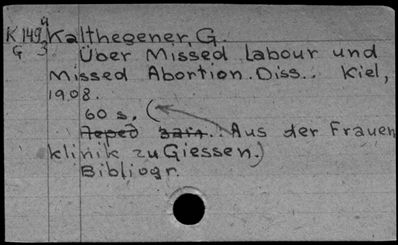 K 149 9 Kalthegener, G.
G 3. Über Missed Labour und
Missed Abortion. Diss.. Kiel,
1908.
60 s. (
Aus der Frauen
klinik zu Giessen.)
Bibliogr.